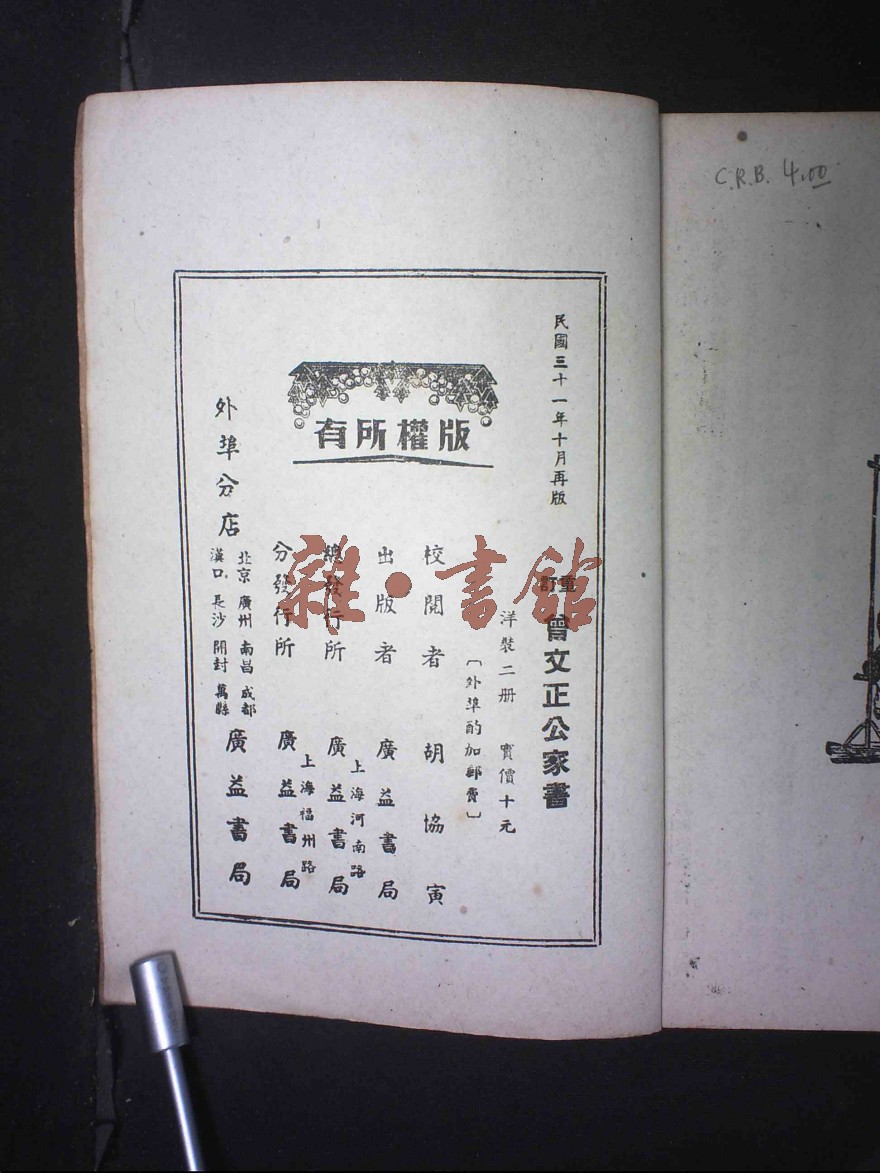 民國三十一年十月再版
重訂 曾文正公家書
洋裝二册 實價十元
〔外埠酌加郵費〕
版權所有
校閱者 胡協寅
出版者 廣益書局
上海河南路
總發行所 廣益書局
上海福州路
分發行所 廣益書局
外埠分店
北京 廣州 南昌 成都
漢口 長沙 開封 萬縣
廣益書局
雜·書館
C.R.B. 4.00